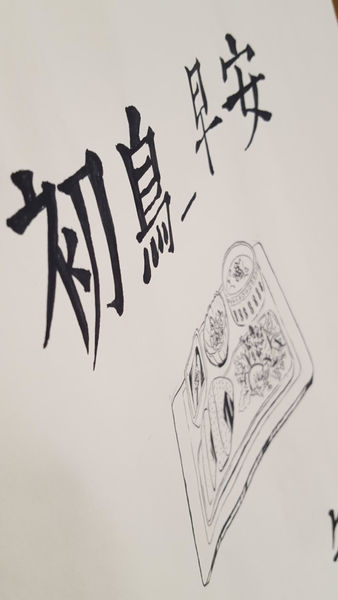 初鳥_早安